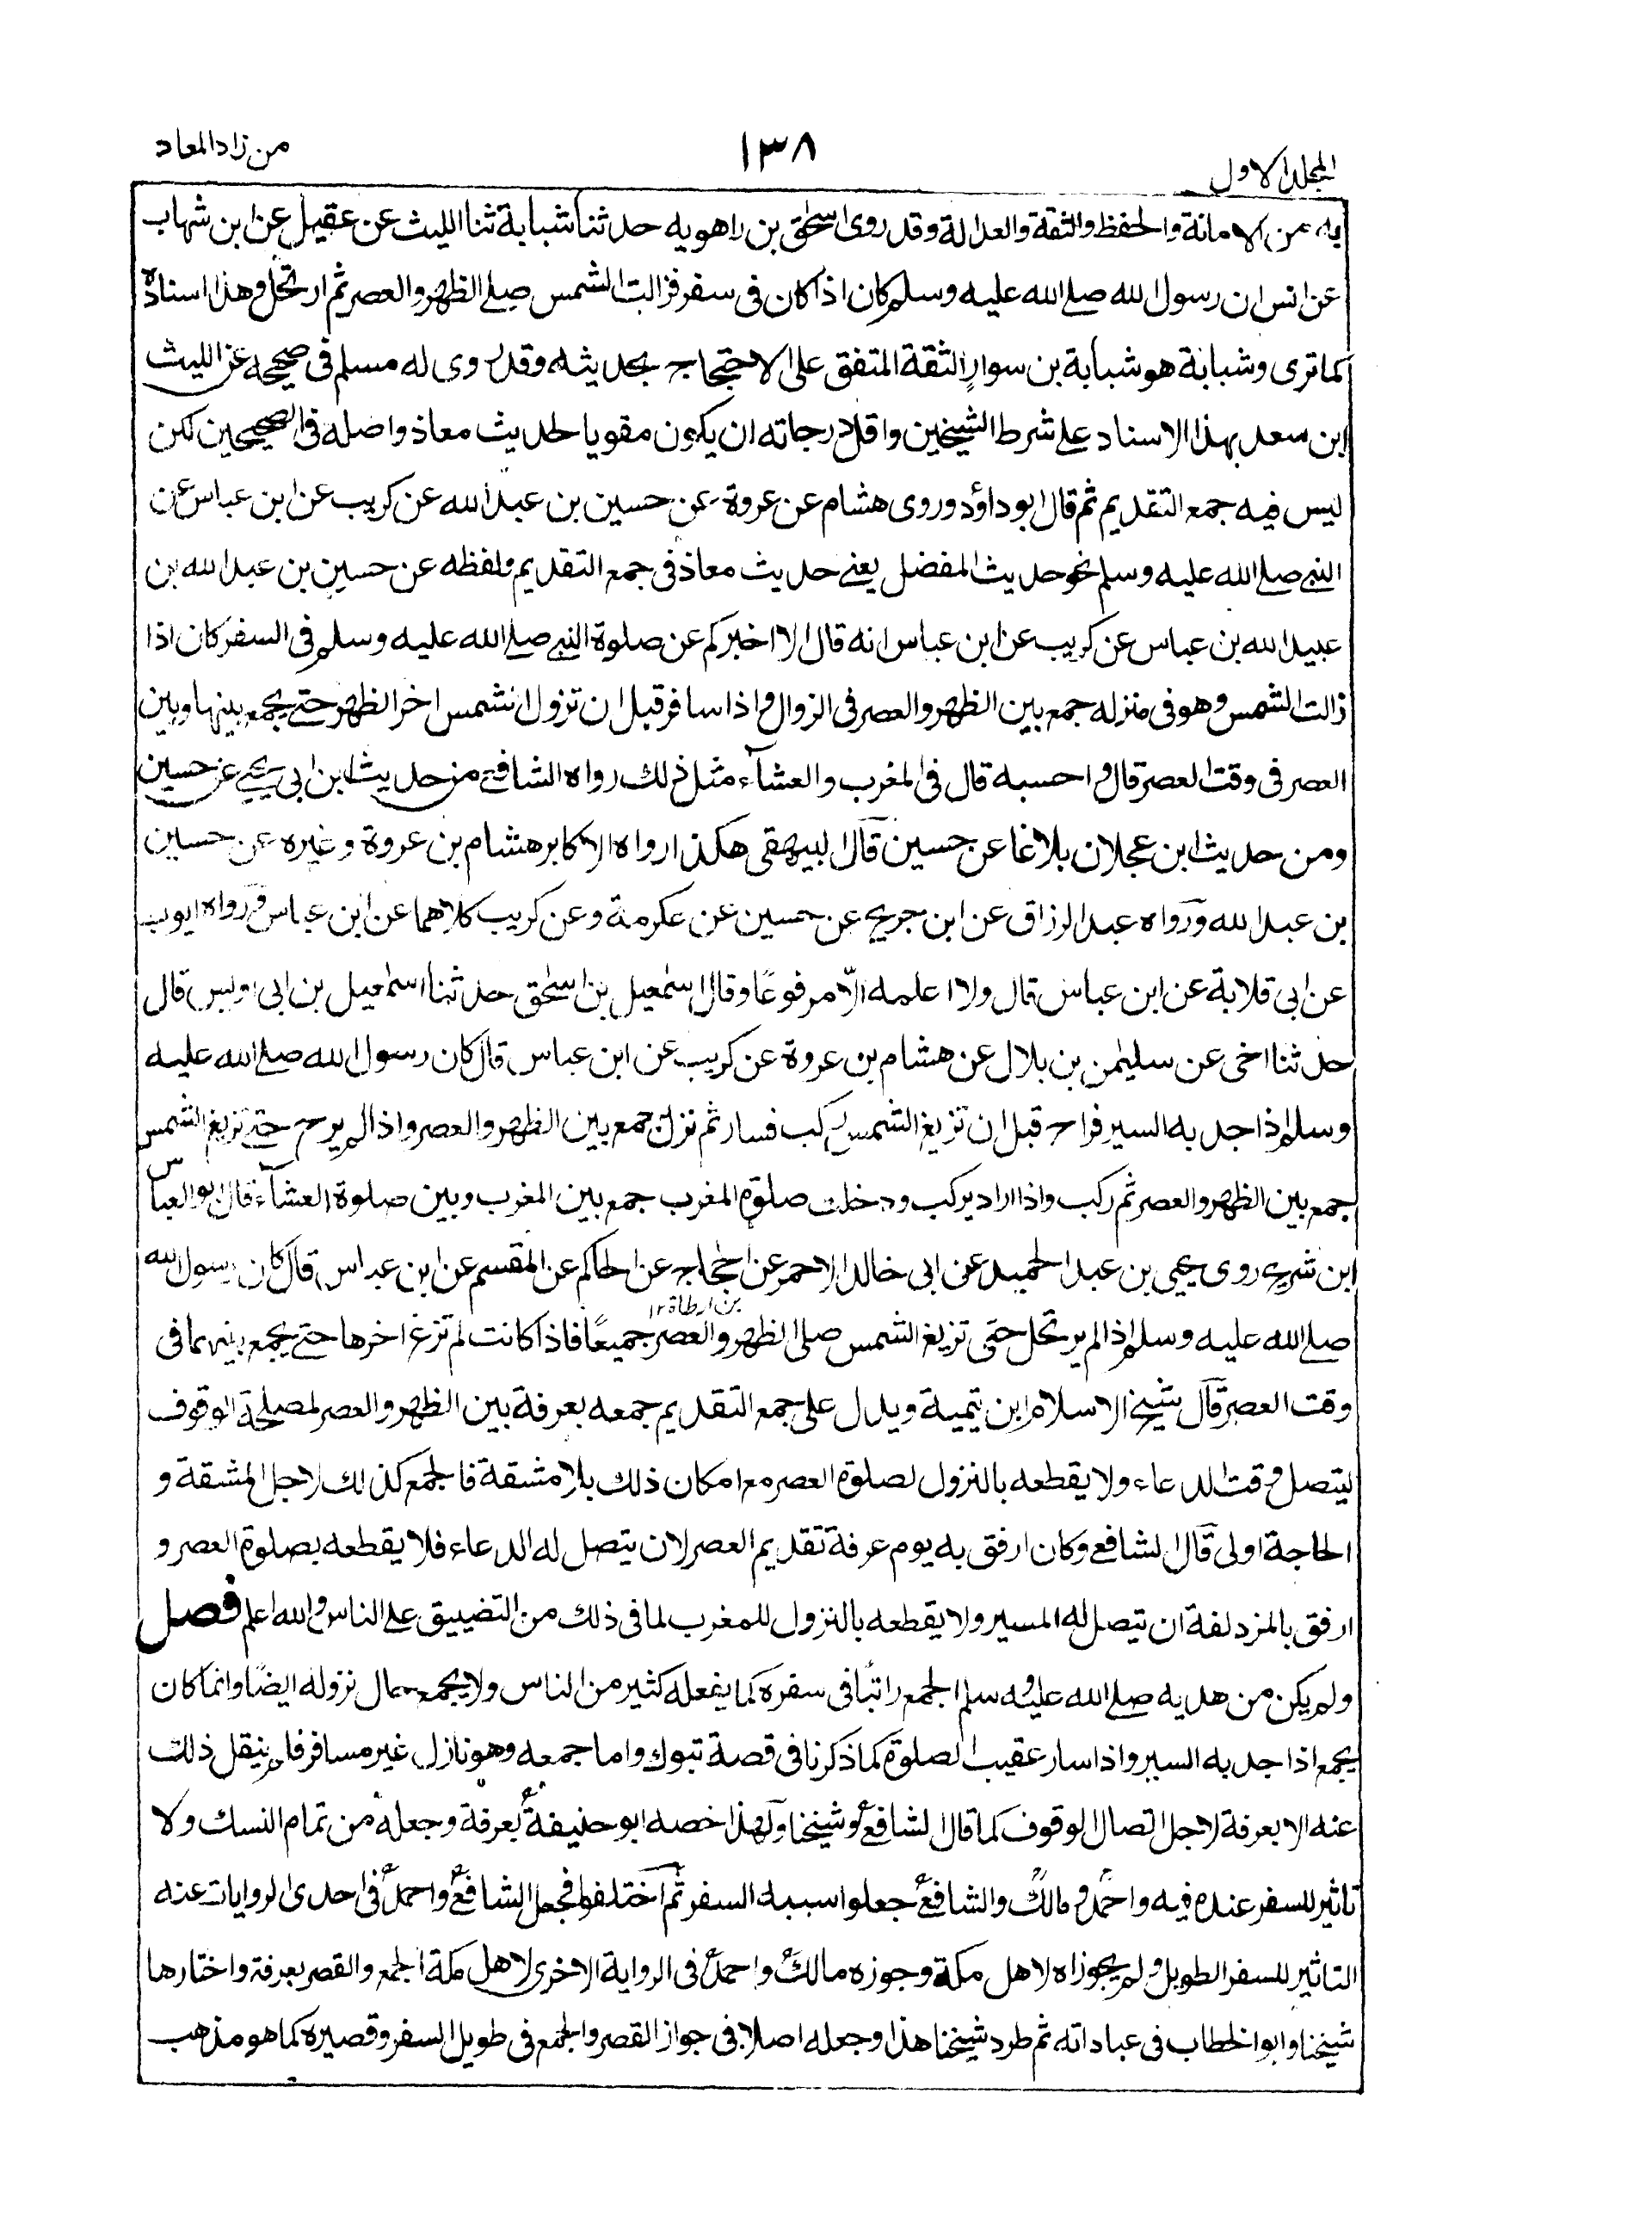 المجلد الاول
١٣٨
من زاد المعاد
به من الامانة والحفظ والثقة والعدالة وقد روى اسحٰق بن راهويه حدثنا شبابة ثنا الليث عن عقيل عن ابن شهاب
عن انس ان رسول الله صلے الله عليه وسلم كان اذا كان فى سفر فزالت الشمس صلے الظهر والعصر ثم ارتحل وهذا اسناده
كما ترى وشبابة هو شبابة بن سوار الثقة المتفق على الاحتجاج بحديثه وقد روى له مسلم فى صحيحه عن الليث
ابن سعد بهذا الاسناد علے شرط الشيخين واقل درجاته ان يكون مقويا لحديث معاذ واصله فى الصحيحين لكن
ليس فيه جمع التقديم ثم قال ابو داؤد وروى هشام عن عروة عن حسين بن عبد الله عن كريب عن ابن عباس عن
النبے صلے الله عليه وسلم نحو حديث المفضل يعنے حديث معاذ فى جمع التقديم ولفظه عن حسين بن عبد الله بن
عبيد الله بن عباس عن كريب عن ابن عباس انه قال الا اخبركم عن صلوة النبے صلے الله عليه وسلم فى السفر كان اذا
زالت الشمس وهو فى منزله جمع بين الظهر والعصر فى الزوال واذا سافر قبل ان تزول الشمس اخر الظهر حتے يجمع بينها وبين
العصر فى وقت العصر قال واحسبه قال فى المغرب والعشآء مثل ذلك رواه الشافعے من حديث ابن ابى يحيے عن حسين
ومن حديث ابن عجلان بلاغا عن حسين قال البيهقى هكذا رواه الاكابر هشام بن عروة وغيره عن حسين
بن عبد الله ورواه عبد الرزاق عن ابن جريج عن حسين عن عكرمة وعن كريب كلاهما عن ابن عباس ورواه ايوب
عن ابى قلابة عن ابن عباس قال ولا اعلمه الّا مرفوعًا وقال اسمٰعيل بن اسحٰق حدثنا اسمٰعيل بن ابى اويس قال
حدثنا اخى عن سليمٰن بن بلال عن هشام بن عروة عن كريب عن ابن عباس قال كان رسول الله صلے الله عليه
وسلم اذا جد به السير فراح قبل ان تزيغ الشمس ركب فسار ثم نزل جمع بين الظهر والعصر واذا لم يرح حتے تزيغ الشمس
جمع بين الظهر والعصر ثم ركب واذا اراد يركب ودخلت صلوة المغرب جمع بين المغرب وبين صلوة العشآء قال ابو العباس
ابن شريح روى يحيى بن عبد الحميد عن ابى خالد الاحمر عن الحجاج عن الحاكم عن المقسم عن ابن عباس قال كان رسول الله
بن ارطاة ١٢
صلے الله عليه وسلم اذا لم يرتحل حتى تزيغ الشمس صلى الظهر والعصر جميعًا فاذا كانت لم تزغ اخرها حتے يجمع بينهما فى
وقت العصر قال شيخ الاسلام ابن تيمية ويدل على جمع التقديم جمعه بعرفة بين الظهر والعصر لمصلحة الوقوف
ليتصل وقت الدعاء ولا يقطعه بالنزول لصلوة العصر مع امكان ذلك بلا مشقة فالجمع كذلك لاجل المشقة و
الحاجة اولى قال الشافعے وكان ارفق به يوم عرفة تقديم العصر لان يتصل له الدعاء فلا يقطعه بصلوة العصر و
ارفق بالمزدلفة ان يتصل له المسير ولا يقطعه بالنزول للمغرب لما فى ذلك من التضييق علے الناس والله اعلم فصل
ولم يكن من هديه صلے الله عليه وسلم الجمع راتبا فى سفره كما يفعله كثير من الناس ولا يجمع حال نزوله ايضًا وانما كان
يجمع اذا جد به السير واذا سار عقيب الصلوة كما ذكرنا فى قصة تبوك واما جمعه وهو نازل غير مسافر فلم ينقل ذلك
عنه الا بعرفة لاجل اتصال الوقوف كما قال الشافعے وشيخنا ولهذا خصه ابو حنيفة بعرفة وجعله من تمام النسك ولا
تاثير للسفر عنده فيه واحمد ومالك والشافعے جعلوا سببه السفر ثم اختلفوا فجعل الشافعے واحمد فى احدى الروايات عنه
التاثير للسفر الطويل ولم يجوزاه لاهل مكة وجوزه مالك واحمد فى الرواية الاخرى لاهل مكة الجمع والقصر بعرفة واختارها
شيخنا وابو الخطاب فى عباداته ثم طرد شيخنا هذا وجعله اصلا فى جواز القصر والجمع فى طويل السفر وقصيره كما هو مذهب